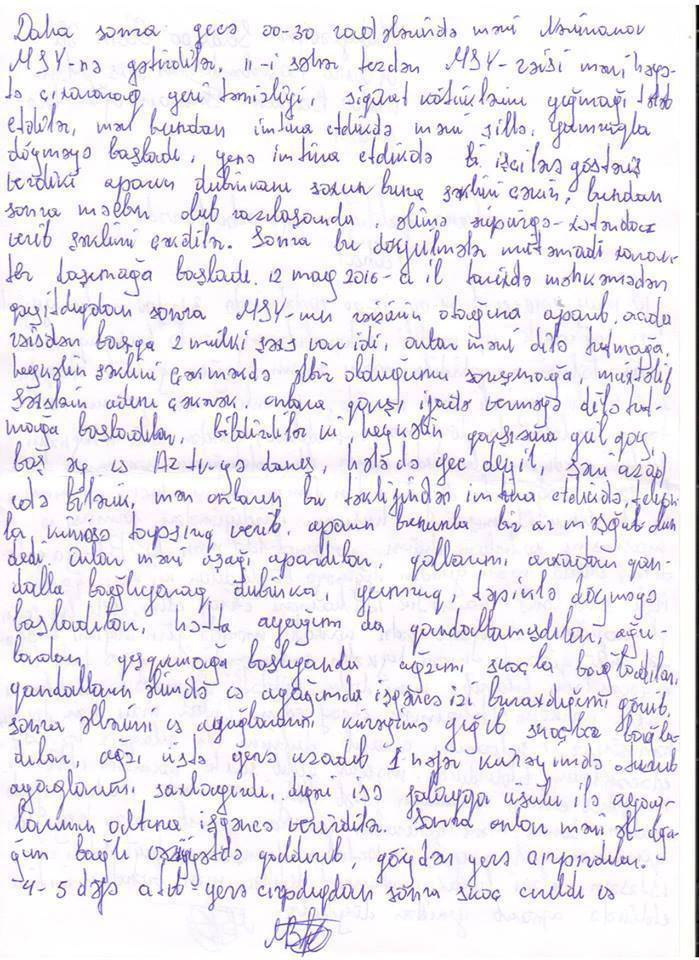 Daha sonra gecə 00-30 radələrində məni Nərimanov
MSY-nə gətirdilər. 11-i səhər tezdən MSY rəisi məni həyə-
tə çıxararaq yeri təmizləyi, siqaret kötüklərini yığmağı tələb
etdilər, mən bundan imtina etdikdə məni sillə, yumruqla
döyməyə başladı, yenə imtina etdikdə bi işçilərə göstəriş
verdiki aparın dubinkanı soxun buna şəklini çəkin, bundan
sonra məcbur olub razılaşanda, əlimə süpürgə-xəkəndaz
verib şəklimi çəkdilər. Sonra bu döyülmələr mütəmadi xarak-
ter daşımağa başladı. 12 may 2016-cı il tarixdə məhkəmədən
qayıtdıqdan sonra MSY-nın rəisinin otağına aparıb, orada
rəisdən başqa 2 mülki şəxs var idi, onlar məni dilə tutmağa,
heykəlin şəklini çəkməkdə əlbir olduğumu soruşmağa, müxtəlif
şəxslərin adını çəkərək onlara qarşı ifadə verməyə dilə tut-
mağa başladılar, bildirdilər ki heykəlin qarşısına gül qoy
baş əy və AZ tv-yə danış, hələ də gec deyil, səni azad
edə bilərik, mən onların bu təklifindən imtina etdikdə, telefon-
la kiməsə tapşırıq verib, aparın bununla bir az məşğul olun
dedi. Onlar məni aşağı apardılar, qollarımı arxadan qan-
dalla bağlıyaraq dubinka, yumruq, təpiklə döyməyə
başladılar, hətta ayağımı da qandallamışdılar, ağrı-
lardan qışqırmağa başlıyanda ağzımı skoçla bağladılar,
qandalların əlimdə və ayağımda işgəncə izi buraxdığını görüb,
sonra əllərimi və ayaqlarımı kürəyimə yığıb skoçla bağla-
dılar, ağzı üstə yerə uzadıb 1 nəfər kürəyimdə oturub
ayaqlarımı saxlayırdı, digəri isə falaqqa üsulu ilə ayaq-
larımın altına işgəncə verirdilər. Sonra onlar məni əl-aya-
ğım bağlı vəziyyətdə qaldırıb, göydən yerə çırpırdılar.
4-5 dəfə atıb-yerə çırpdıqdan sonra skoç cırıldı və